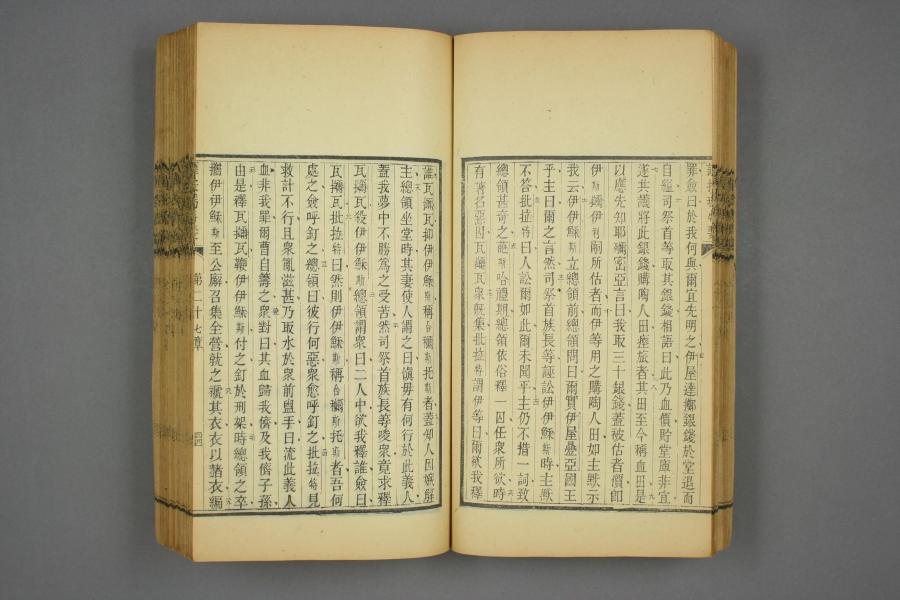 罪僉曰於我何與爾宜先明之伊屋達擲銀錢於堂退而
自縊司祭首等取其銀錢相語曰此乃血價貯堂庫非宜
遂共議將此銀錢購陶人田瘞旅者其田至今稱血田是
以應先知耶爾密亞言曰我取三十銀錢蓋被估者價卽
伊斯爾伊利嗣所估者而伊等用之購陶人田如主默示
我云伊伊穌斯立總領前總領問曰爾實伊屋疊亞國王
乎主曰爾之言然司祭首族長等誣訟伊伊穌斯時主默
不答批拉特曰人訟爾如此爾未聞乎主仍不措一詞致
總領甚奇之葩斯哈禮期總領依俗釋一囚任衆所欲時
有著名惡囚瓦瓦衆旣集批拉特謂伊等曰爾欲我釋
誰瓦瓦抑伊伊穌斯稱合斯托斯者蓋知人因嫉解
主總領坐堂時其妻使人謂之曰愼毋有何行於此義人
蓋我夢中不勝爲之受苦然司祭首族長等唆衆竟求釋
瓦瓦殺伊伊穌斯總領謂衆曰二人中欲我釋誰僉曰
瓦瓦批拉特曰然則伊伊穌斯稱合斯托斯者吾何
處之僉呼釘之總領曰彼行何惡衆愈呼釘之批拉特見
救計不行且衆亂滋甚乃取水於衆前盥手曰流此義人
血非我罪爾曹自籌之衆對曰其血歸我儕及我儕子孫
由是釋瓦瓦鞭伊伊穌斯付之釘於刑架時總領之卒
攜伊伊穌斯至公廨召集全營就之褫其衣衣以赭衣編
第二十七章